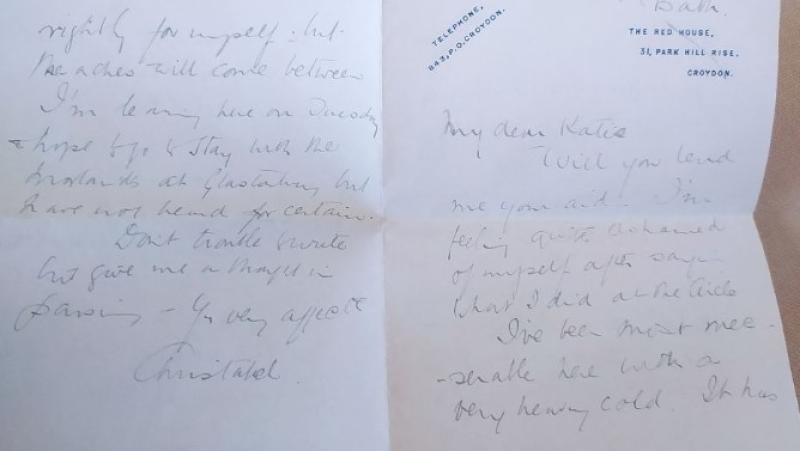 TELEPHONE,
843, P.O. CROYDON.
Bath.
THE RED HOUSE,
31, PARK HILL RISE,
CROYDON.
My dear Katie
Will you lend
me your aid. I'm
feeling quite ashamed
of myself after sayin
what I did at the Circle
I've been most mee-
-serable here with a
very heavy cold. It has
rightly for myself: but
the aches will come between
I'm leaving here on Tuesday
& hope to go & stay with the
at Glastonbury but
have not heard for certain.
Don't trouble to write
but give me a thought in
passing - Yr very affecte
Christabel.